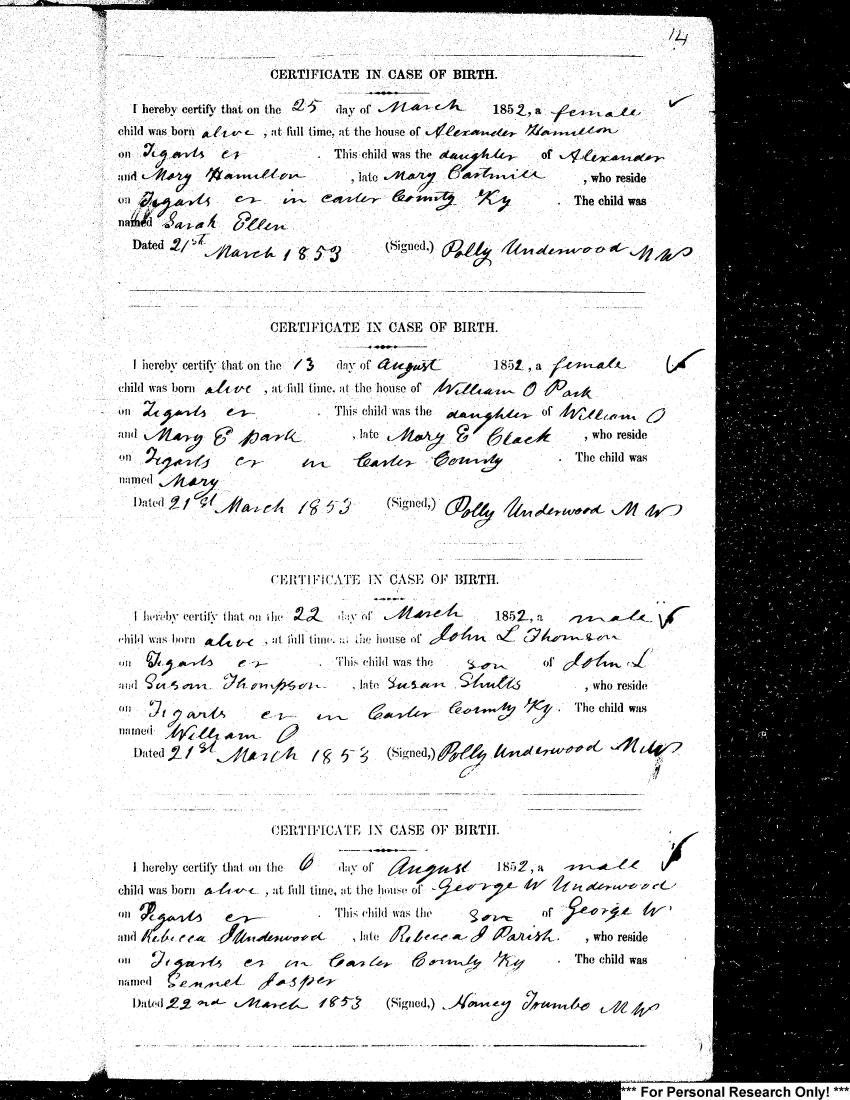 14
CERTIFICATE IN CASE OF BIRTH.
I hereby certify that on the 25 day of March 1852, a female
child was born alive, at full time, at the house of Alexander Hamilton
on Tigarts cr. This child was the daughter of Alexander
and Mary Hamilton, late Mary Cartmill, who reside
on Tigarts cr in carter County Ky. The child was
named Sarah Ellen
Dated 21st March 1853 (Signed,) Polly Underwood M W
CERTIFICATE IN CASE OF BIRTH.
I hereby certify that on the 13 day of August 1852, a female
child was born alive, at full time, at the house of William O Park
on Tigarts cr. This child was the daughter of William O
and Mary E park, late Mary E Clack, who reside
on Tigarts cr in Carter County. The child was
named Mary
Dated 21st March 1853 (Signed,) Polly Underwood M W
CERTIFICATE IN CASE OF BIRTH.
I hereby certify that on the 22 day of March 1852, a male
child was born alive, at full time, at the house of John L Thomson
on Tigarts cr. This child was the son of John L
and Susan Thompson, late Susan Shults, who reside
on Tigarts cr in Carter County Ky. The child was
named William O
Dated 21st March 1853 (Signed,) Polly Underwood M W
CERTIFICATE IN CASE OF BIRTH.
I hereby certify that on the 6 day of August 1852, a male
child was born alive, at full time, at the house of George W Underwood
on Tigarts cr. This child was the son of George W
and Rebecca J Underwood, late Rebecca J Parish, who reside
on Tigarts cr in Carter County Ky. The child was
named Sennet Jasper
Dated 22nd March 1853 (Signed,) Nancy Trumbo M W
*** For Personal Research Only! ***